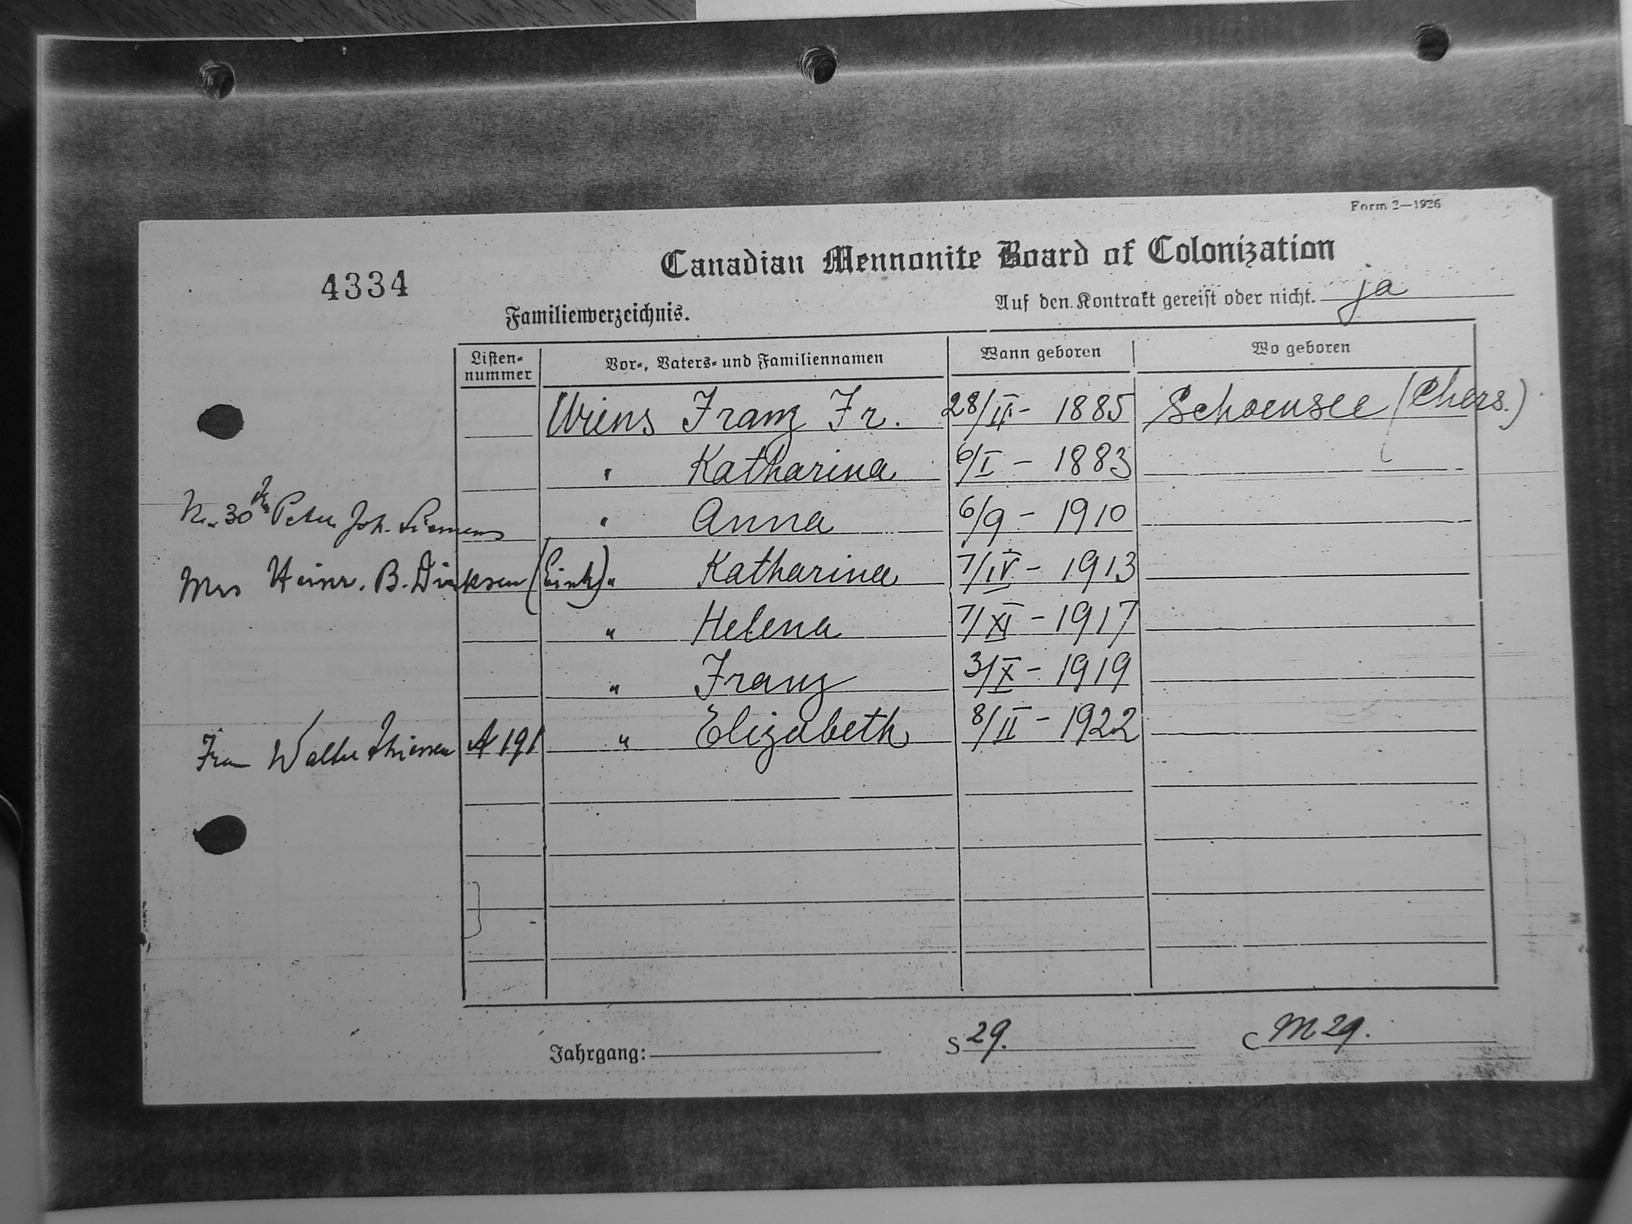 Form 2—1926
Canadian Mennonite Board of Colonization
4334
Auf den Kontrakt gereist oder nicht. ja
Familienverzeichnis.
Listen-
nummer
Vor-, Vaters- und Familiennamen
Wann geboren
Wo geboren
Wiens Franz Fr. 28/II - 1885 Schoensee (Chers.)
" Katharina 6/I - 1883
30 Peter Joh. Siemens " Anna 6/9 - 1910
Mrs Heinr. B. Dirksen " Katharina 7/IV - 1913
" Helena 7/XI - 1917
" Franz 3/X - 1919
Frau Walter Thiessen A 191 " Elizabeth 8/II - 1922
Jahrgang: S 29. C M 29.